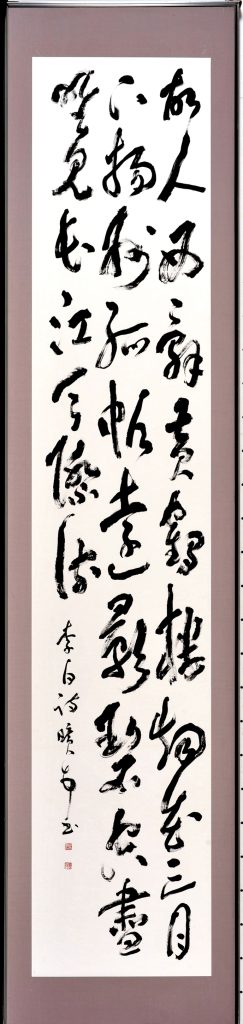 故人西辭黃鶴樓烟花三月
下揚州孤帆遠影碧空盡
唯見長江天際流 李白詩